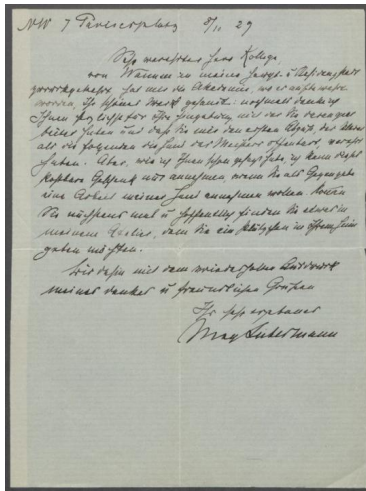 NW 7 Pariserplatz 8/11 29
Sehr verehrter Herr Kollege,
von Wannsee in meine Haupt- u Residenzstadt
zurückgekehrt, hat mir die Akademie, wo es aufbewahrt
worden, Ihr schönes Werk gesandt: nochmals danke ich
Ihnen herzlichst für Ihre Hingebung, mit der Sie
haben und daß Sie mir den ersten
als die folgenden die Hand des Meisters offenbart, verehrt
haben. Aber, wie ich Ihnen schon gesagt habe, ich kann dieses
kostbare Geschenk nur annehmen, wenn Sie als Gegengabe
eine Arbeit meiner Hand annehmen wollen.
Sie nächstens mal u hoffentlich finden Sie etwas in
meinem Atelier, dem Sie ein Plätzchen in Ihrem Heim
geben möchten.
Bis dahin mit dem wiederholten Ausdruck
meines Dankes u freundlichen Grüßen
Ihr sehr ergebener
Max Liebermann